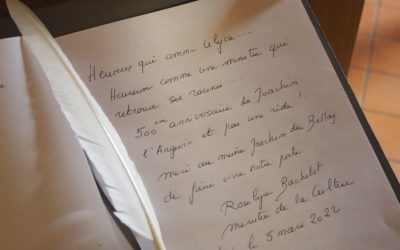 Heureux qui comme Ulysse...
Heureuse comme une ministre qui
retrouve ses racines...
500ème anniversaire de Joachim
l'Angevin et pas une ride !
merci au musée Joachim du Bellay
de faire vivre notre poète
Roselyne Bachelot
ministre de la Culture
le 5 mars 2022